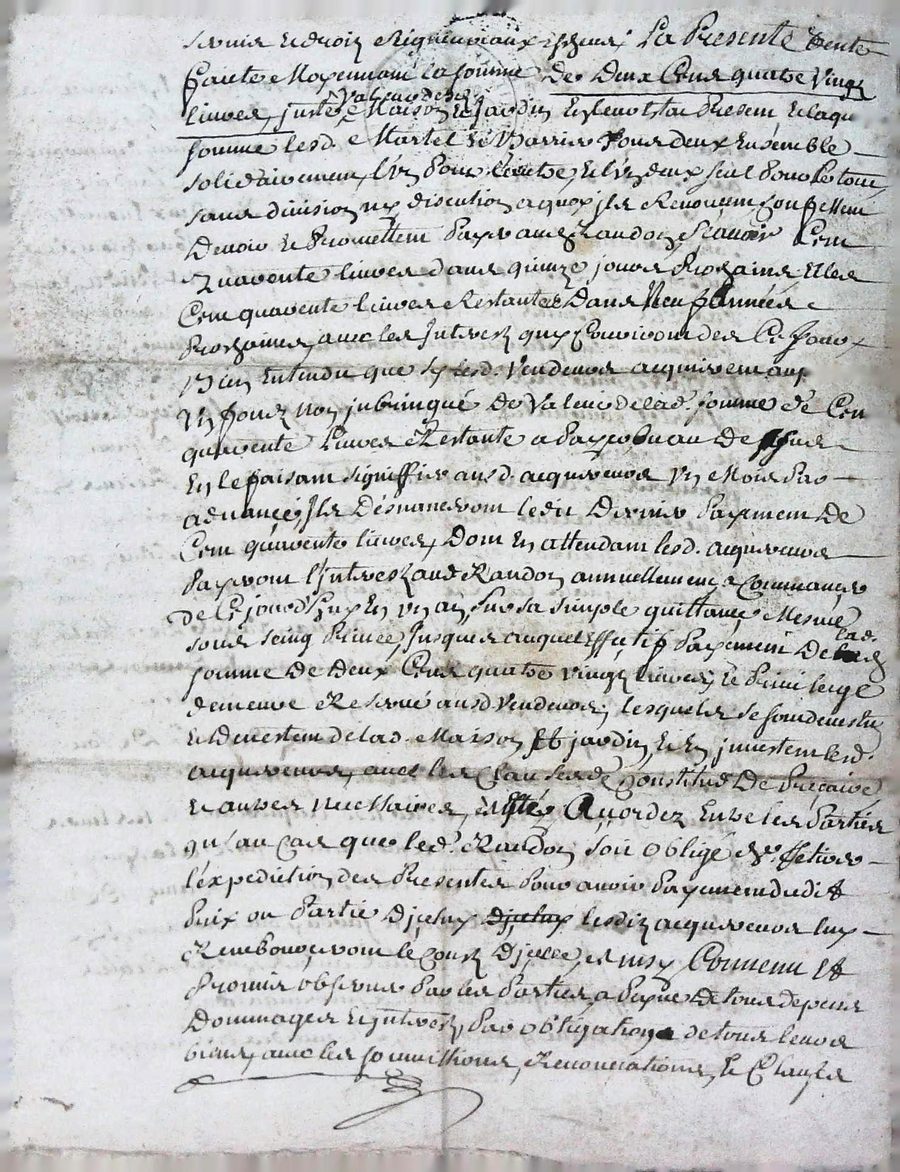 La Presente Vente
faicte Moyennant la somme de Deux Cens quatre Vingt
livres, juste Valeur desd.
Maison et jardin
somme lesd. Martel et Barrie tous deux Ensemble
solidairement, l'un pour l'autre, et l'un deux seul pour le tout,
sans division ny discution a quoy ils Renoncent Confessent
Devoir et Promettent Payer aud. Randon, sçavoir Cent
Quarente livres dans quinze jours Prochains et les
Cent quarente livres Restantes Dans Neuf Années
Prochaines, avec les Intrest quy Couriront des Ce Jour
Bien Entendu que sy lesd. Vendeurs acquierent aux
Un fonds non subrinqué de Valeur de lad. somme de Cent
quarente Livres Restante a Payer
En le faisant signiffier ausd. acquereurs Un Mois Par
advance, Ils Désnanceront ledit Dernier Payment De
Cent quarente livres, Dont En attendant lesd. acquereurs
Payeront l'Intrest aud. Randon annuellement, a Commancer
de Ce jourd'huy En un an, sur sa simple quittance Mesme
sous seing Privée, Jusques auquel Effectif Payement De lad.
somme De Deux Cens quatre Vingt livres, le Privilege
demeure Reservé ausd. Vendeurs, lesquels se sont demis
et Devestent de lad. Maison Et jardin, et En investent lesd.
acquereurs, avec les Clauses de Constitut De Precaire
et autres Necessaires, Acordez Entre les Parties
qu'au Cas que led. Randon soit Obligé
l'expedition des Presentes Pour avoir Payement dudit
Prix ou Partie D'jceluy D'jceluy lesdits acquereurs luy
Rembourceront le Cout D'jcelle, ainsy Convenu Et
Promis observer Par les Parties, a Payne De tous depens
Dommages et Intrest, Par obligation de tous leurs
biens, avec les soumissions, Renonciations, et Clauses